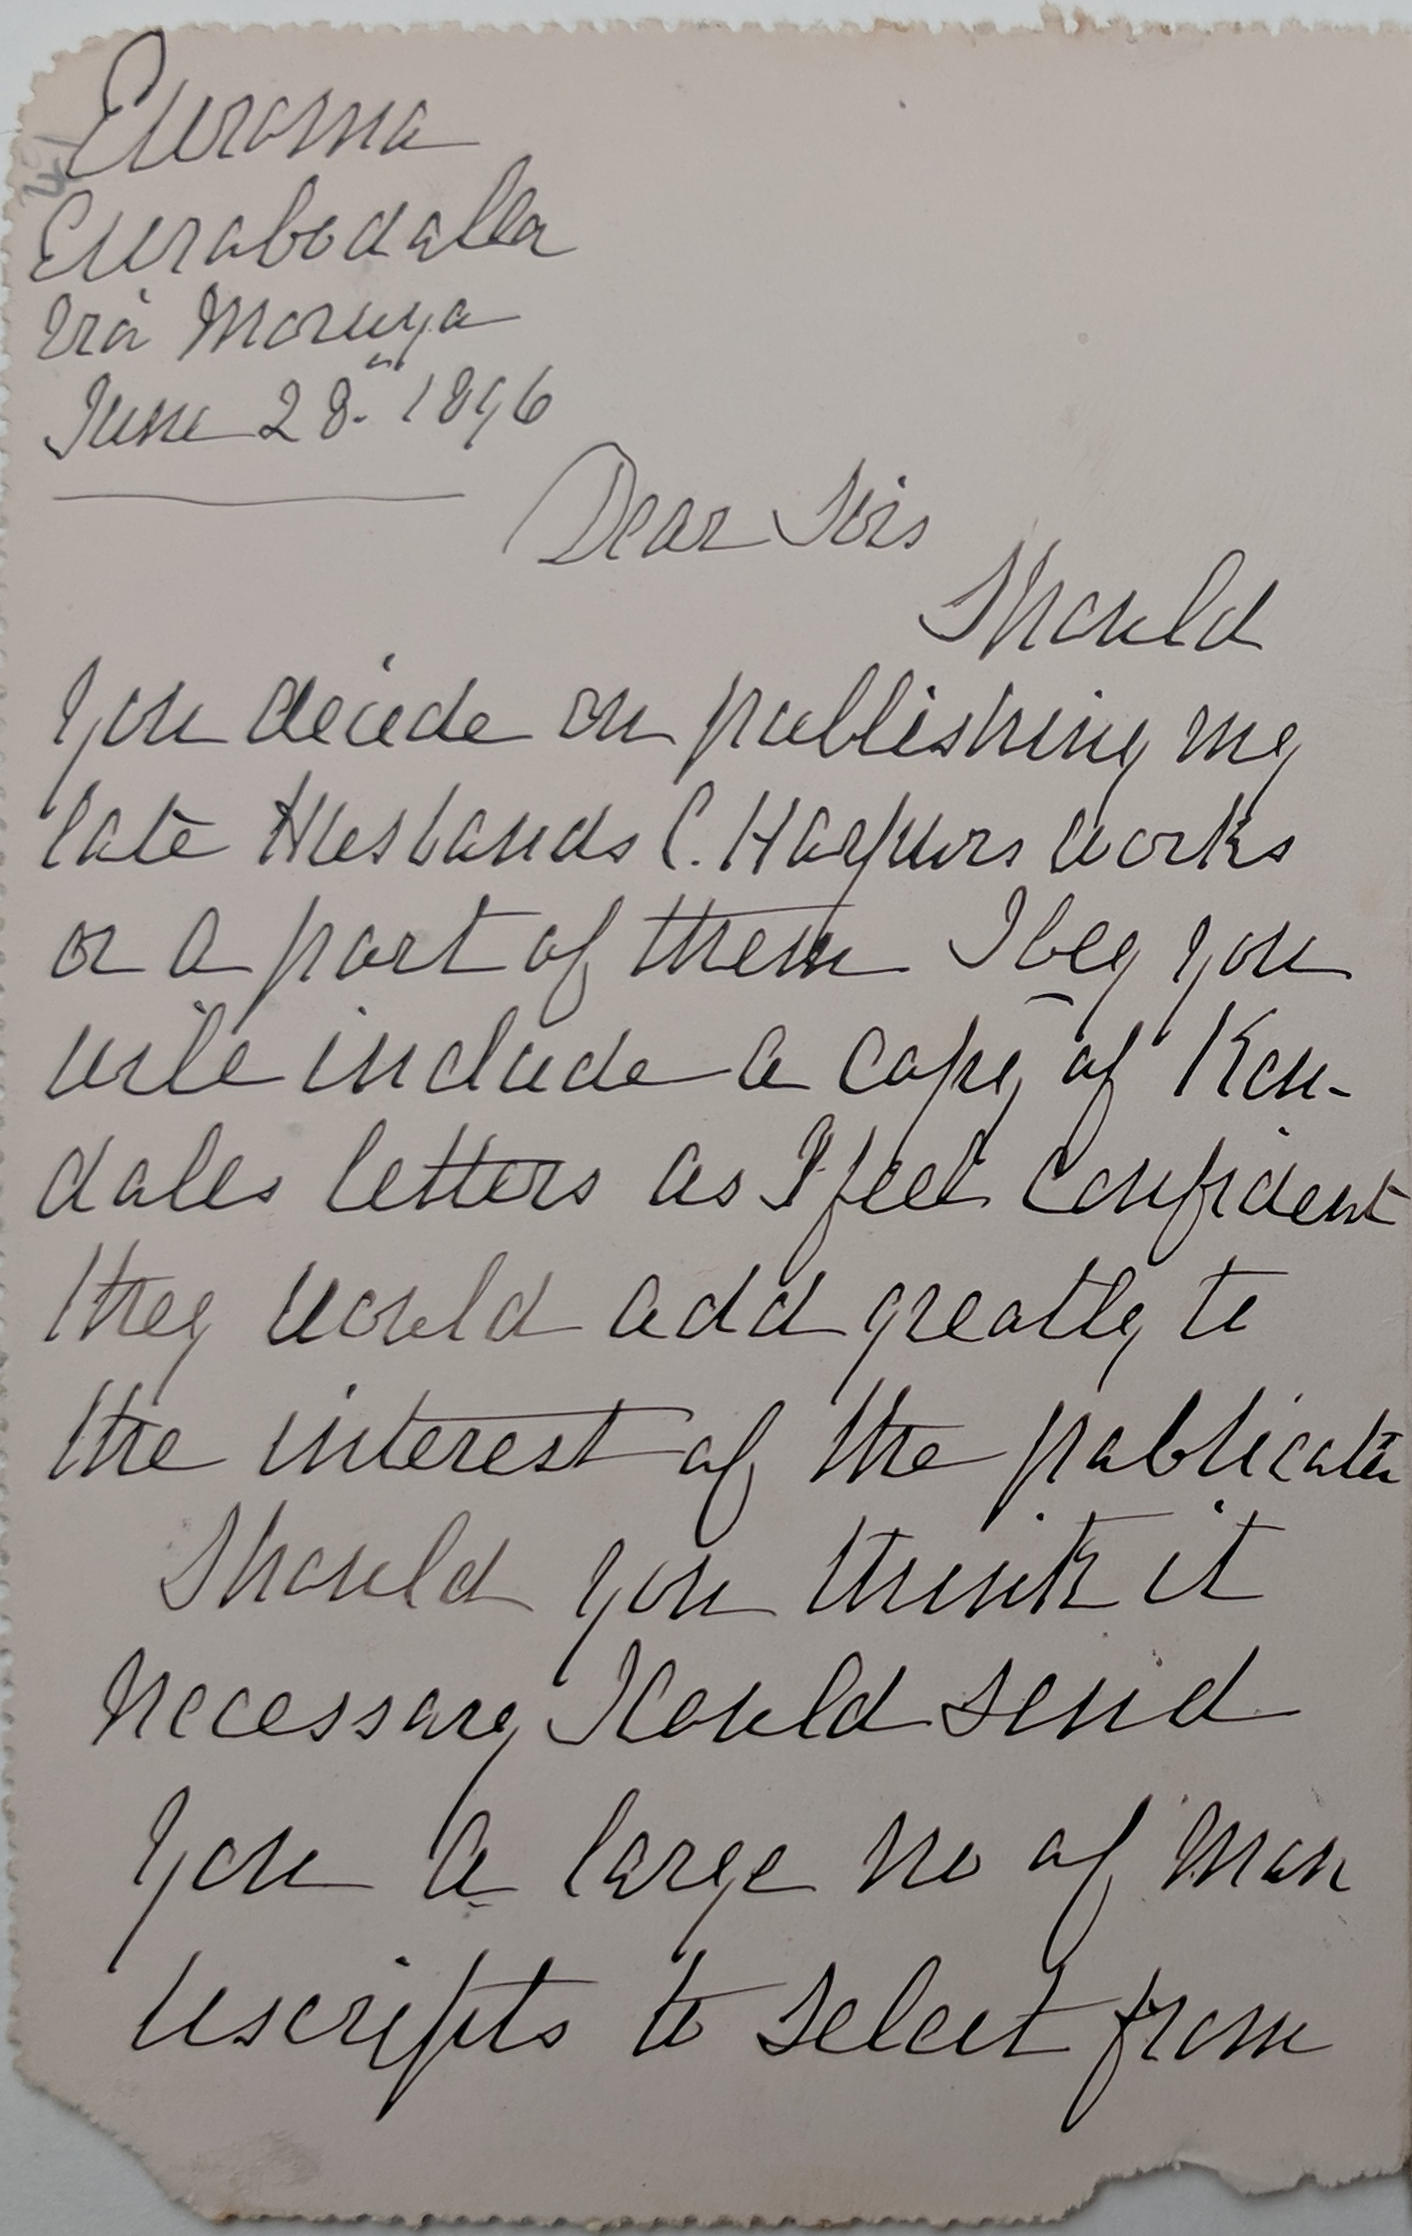 Euroma
Eurabodalla
Via Moruya
June 28th 1896
Dear Sirs
Should
you decide on publishing my
late Husbands C. Harpurs works
or a part of them I beg you
will include a copy of Ken-
dales letters as I feel confident
they would add greatly to
the interest of the publication
Should you think it
necessary I could send
you a large no of Man
uscripts to select from